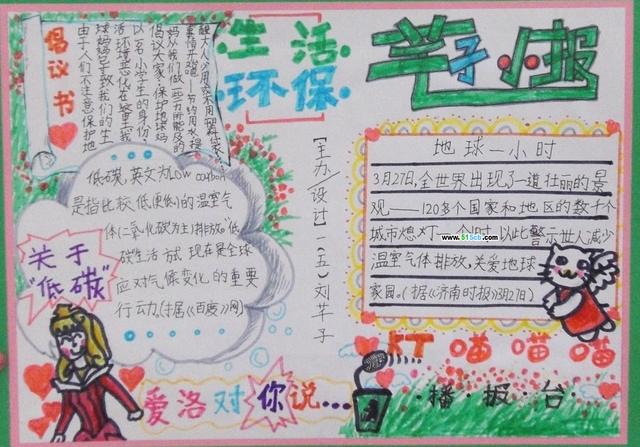 倡议书
由于人们不注意保护地
球妈妈导致我们的生
活环境恶化在这里我
以一名小学生的身份,
倡议大家,保护地球妈
妈从我们做一些力所能及的
事情开始吧—节约用水提
醒大人少用
生活
环保
芊子小报
[主办/设计] 一(五) 刘芊子
低碳,英文为low carbon
是指比较低(更低)的温室气
体(二氧化碳为主)排放。"低
碳"生活方式,现在是全球
应对气候变化的重要
行动。(据《百度》网)
关于
"低碳"
地球一小时
3月27日,全世界出现了一道壮丽的景
观——120多个国家和地区的数千个
城市熄灯一个小时,以此警示世人减少
温室气体排放,关爱地球
家园。(据《济南时报》3月27日)
www.515cb.com
爱洛对你说...
喵喵喵
播报台